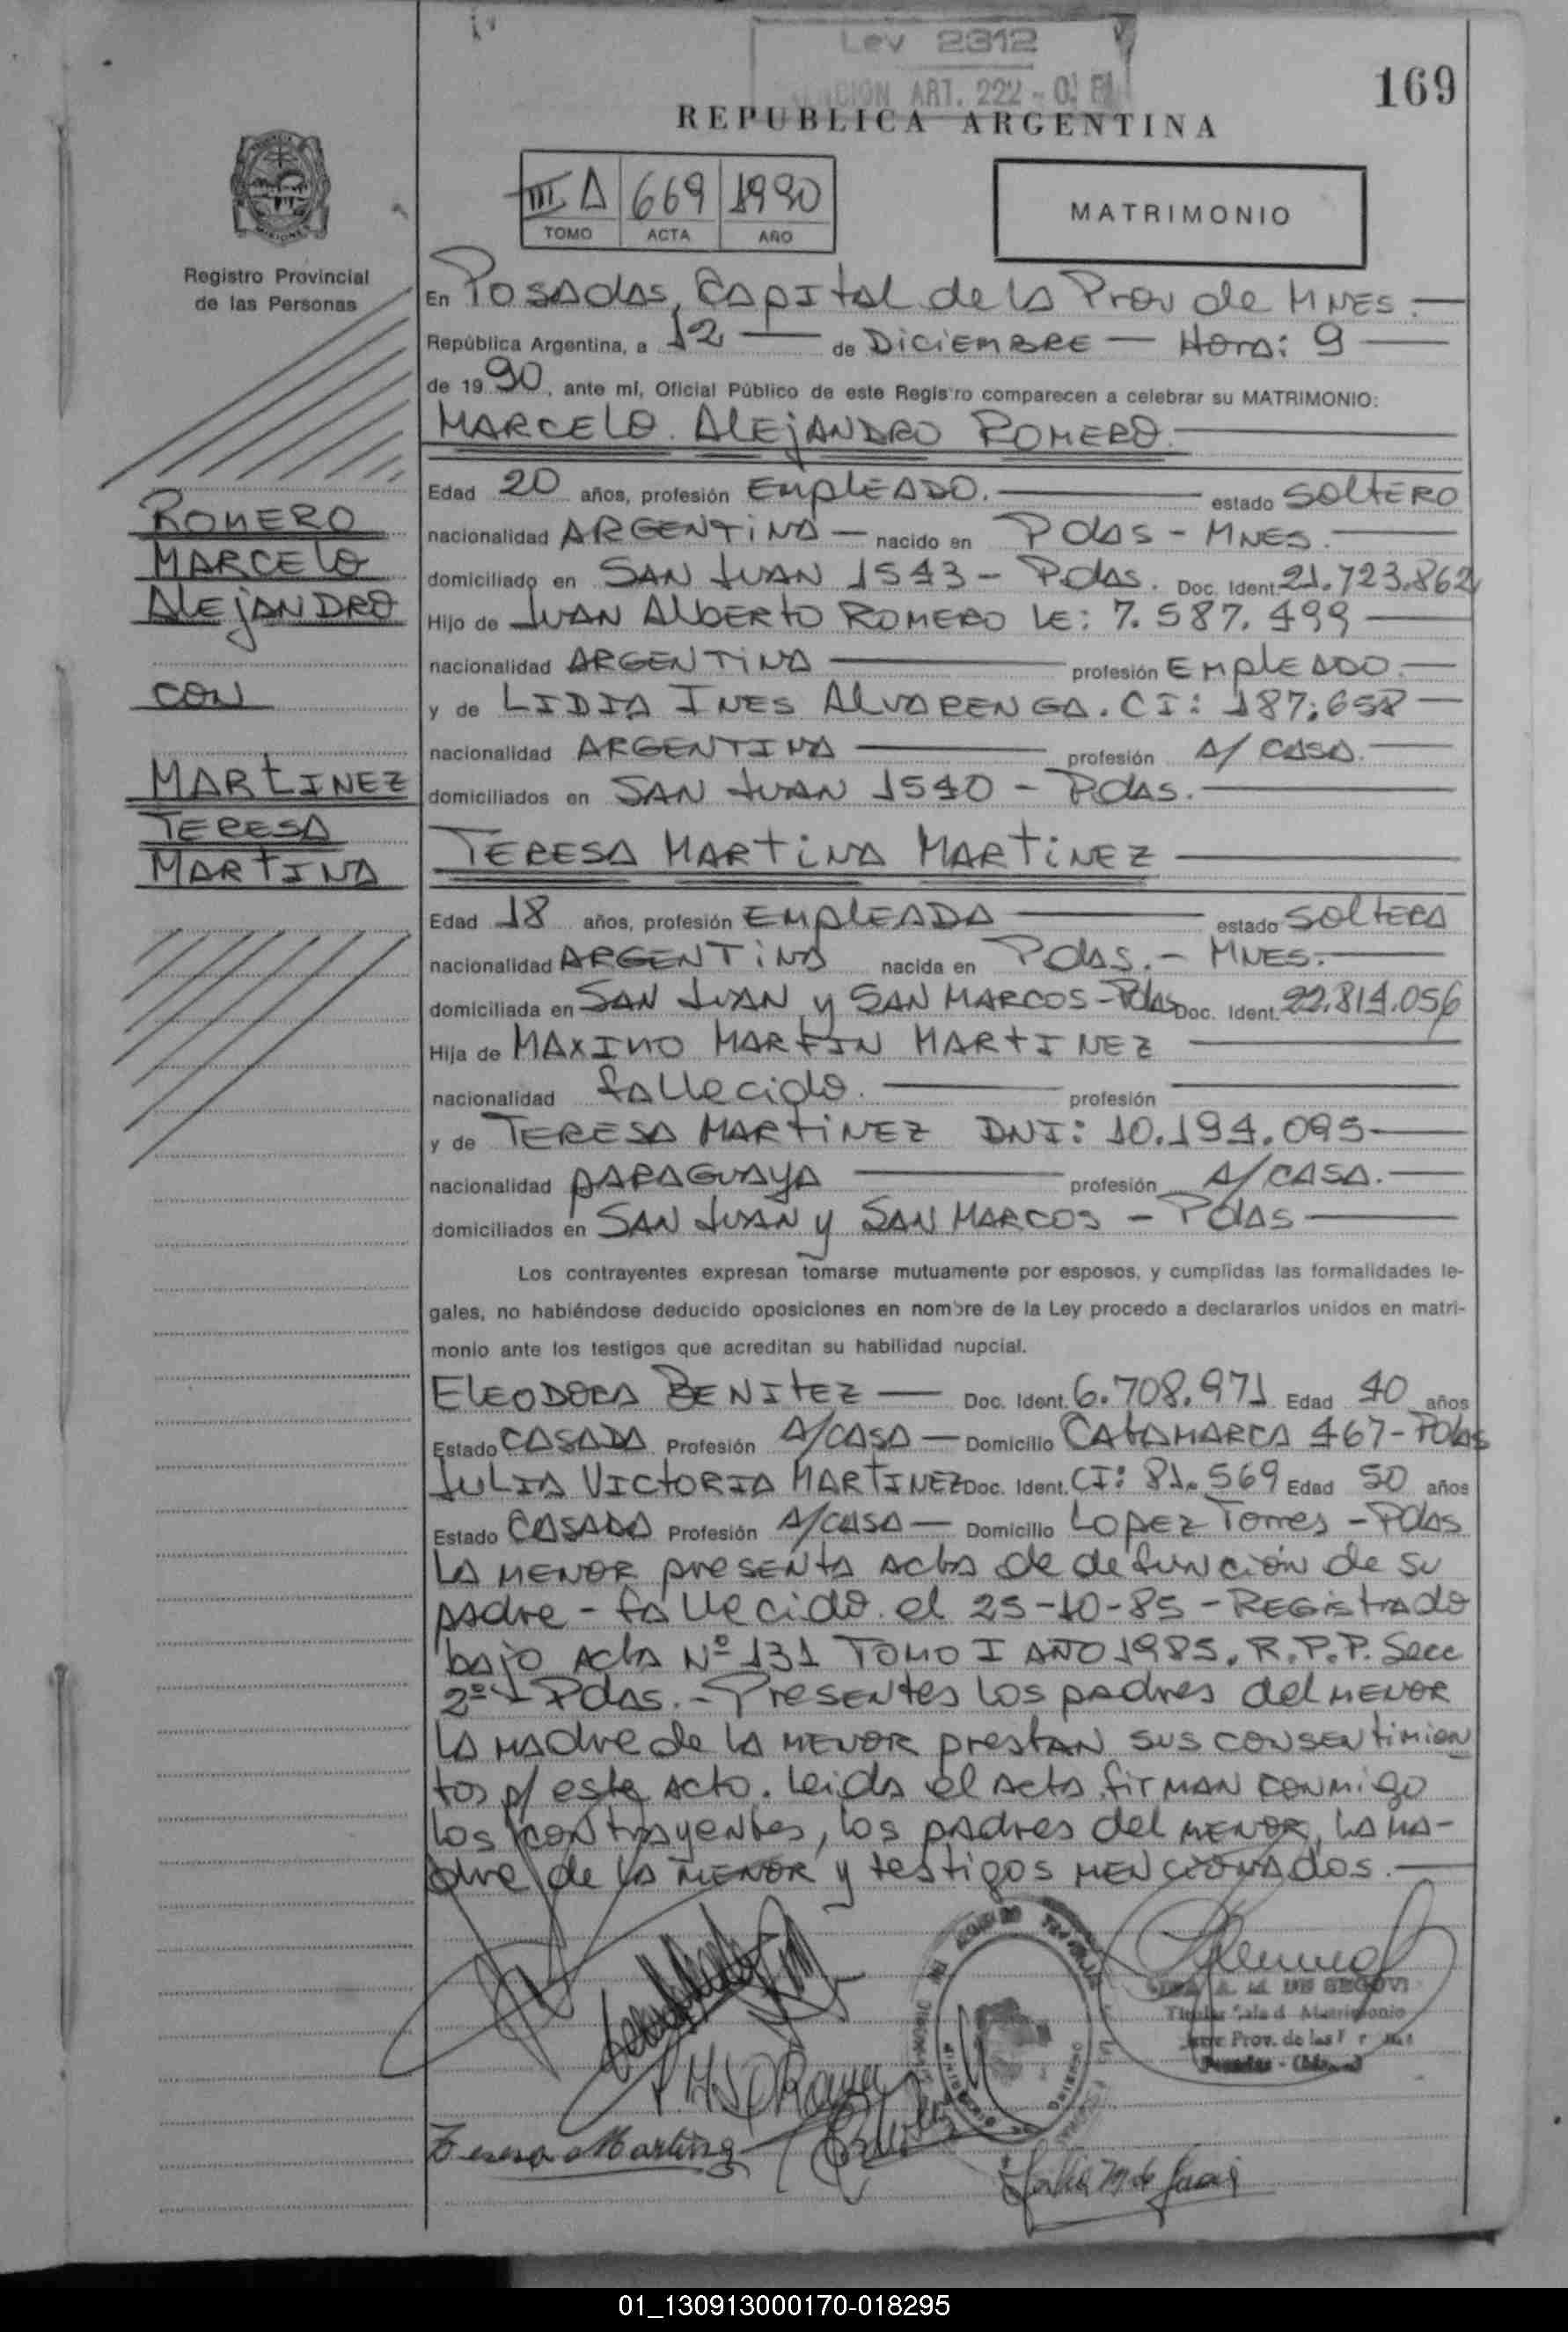 Ley 2312
ART. 222 -
169
REPUBLICA ARGENTINA
III A 669 1990
TOMO ACTA AÑO
MATRIMONIO
Registro Provincial
de las Personas
En Posadas, Capital de la Prov de Mnes.
República Argentina, a 12 de Diciembre Hora: 9
de 19 90, ante mí, Oficial Público de este Registro comparecen a celebrar su MATRIMONIO:
Marcelo Alejandro Romero
Edad 20 años, profesión Empleado. estado Soltero
nacionalidad Argentina nacido en Pdas - Mnes.
domiciliado en San Juan 1543 - Pdas. Doc. Ident. 21.723.862
Hijo de Juan Alberto Romero LE: 7.587.499
nacionalidad Argentina profesión Empleado.
y de Lidia Ines Alvarenga. CI: 187.658
nacionalidad Argentina profesión A/ casa.
domiciliados en San Juan 1540 - Pdas.
Romero
Marcelo
Alejandro
con
Martinez
Teresa
Martina
Teresa Martina Martinez
Edad 18 años, profesión Empleada estado Soltera
nacionalidad Argentina nacida en Pdas. - Mnes.
domiciliada en San Juan y San Marcos - Pdas Doc. Ident. 22.814.056
Hija de Maximo Martin Martinez
nacionalidad fallecido. profesión
y de Teresa Martinez DNI: 10.194.095
nacionalidad paraguaya profesión A/casa.
domiciliados en San Juan y San Marcos - Pdas
Los contrayentes expresan tomarse mutuamente por esposos, y cumplidas las formalidades le-
gales, no habiéndose deducido oposiciones en nombre de la Ley procedo a declararlos unidos en matri-
monio ante los testigos que acreditan su habilidad nupcial.
Eleodora Benitez Doc. Ident. 6.708.971 Edad 40 años
Estado Casada Profesión A/casa Domicilio Catamarca 467 - Pdas
Julia Victoria Martinez Doc. Ident. CI: 81.569 Edad 50 años
Estado Casada Profesión A/casa Domicilio Lopez Torres - Pdas
La menor presenta acta de defunción de su
padre - fallecido el 25-10-85 - Registrado
bajo Acta Nº 131 Tomo I Año 1985. R.P.P. Secc
2º Pdas. - Presentes los padres del menor
la madre de la menor prestan sus consentimien
tos p/ este acto. Leida el acta firman conmigo
los contrayentes, los padres del menor, la ma-
dre de la menor y testigos mencionados.
A. M. DE SEGOVI
Titular Sala d Matrimonio
Prov. de las
Posadas
Teresa Martinez
01_130913000170-018295